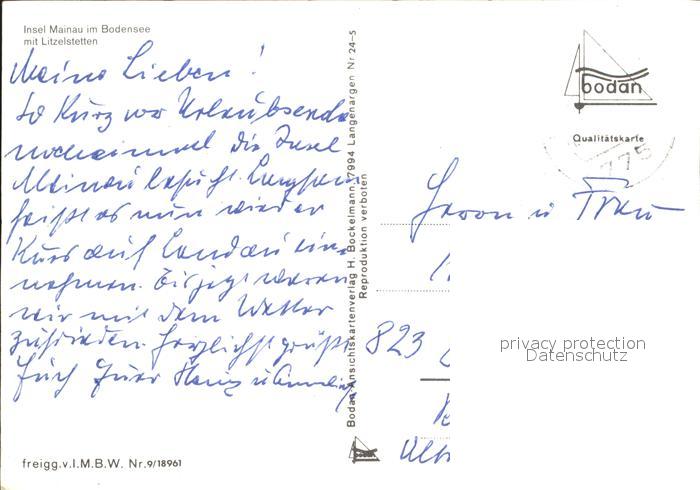 Insel Mainau im Bodensee
mit Litzelstetten
Meine Lieben!
So kurz vor Urlaubsende
nocheinmal die Insel
Mainau besucht. Langsam
heißt es nun wieder
Kurs auf Landau ein-
nehmen. Bis jetzt waren
wir mit dem Wetter
zufrieden. Herzlichst grüßt
Euch Euer Heinz u.
freigg.v.I.M.B.W. Nr.9/18961
Bodan-Ansichtskartenverlag H. Bockelmann, 7994 Langenargen Nr 24-5
Reproduktion verboten
bodan
Qualitätskarte
775
Herrn u Frau
823
privacy protection
Datenschutz